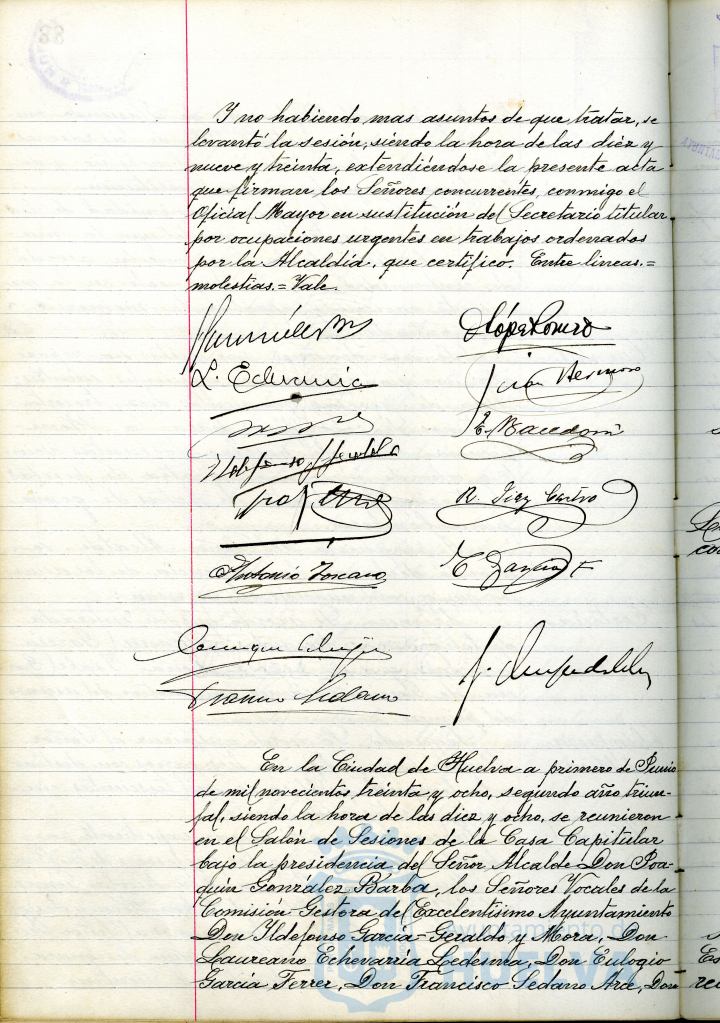 Y no habiendo mas asuntos de que tratar, se
levantó la sesión, siendo la hora de las diez y
nueve y treinta, extendiéndose la presente acta
que firman los Señores concurrentes, conmigo el
Oficial Mayor en sustitución del Secretario titular
por ocupaciones urgentes en trabajos ordenados
por la Alcaldía, que certifico. Entre lineas.=
molestias.= Vale.
López Romero
L. Echevarria
R. Diez Castro
Antonio Toscano
En la Ciudad de Huelva a primero de Junio
de mil novecientos treinta y ocho, segundo año triun-
fal, siendo la hora de las diez y ocho, se reunieron
en el Salón de Sesiones de la Casa Capitular
bajo la presidencia del Señor Alcalde Don Joa-
quin González Barba, los Señores Vocales de la
Comisión Gestora del Excelentísimo Ayuntamiento
Don Ildefonso García-Geraldo y Mora, Don
Laureano Echevarria Ledesma, Don Eulogio
García Ferrer, Don Francisco Sedano Arce, Don